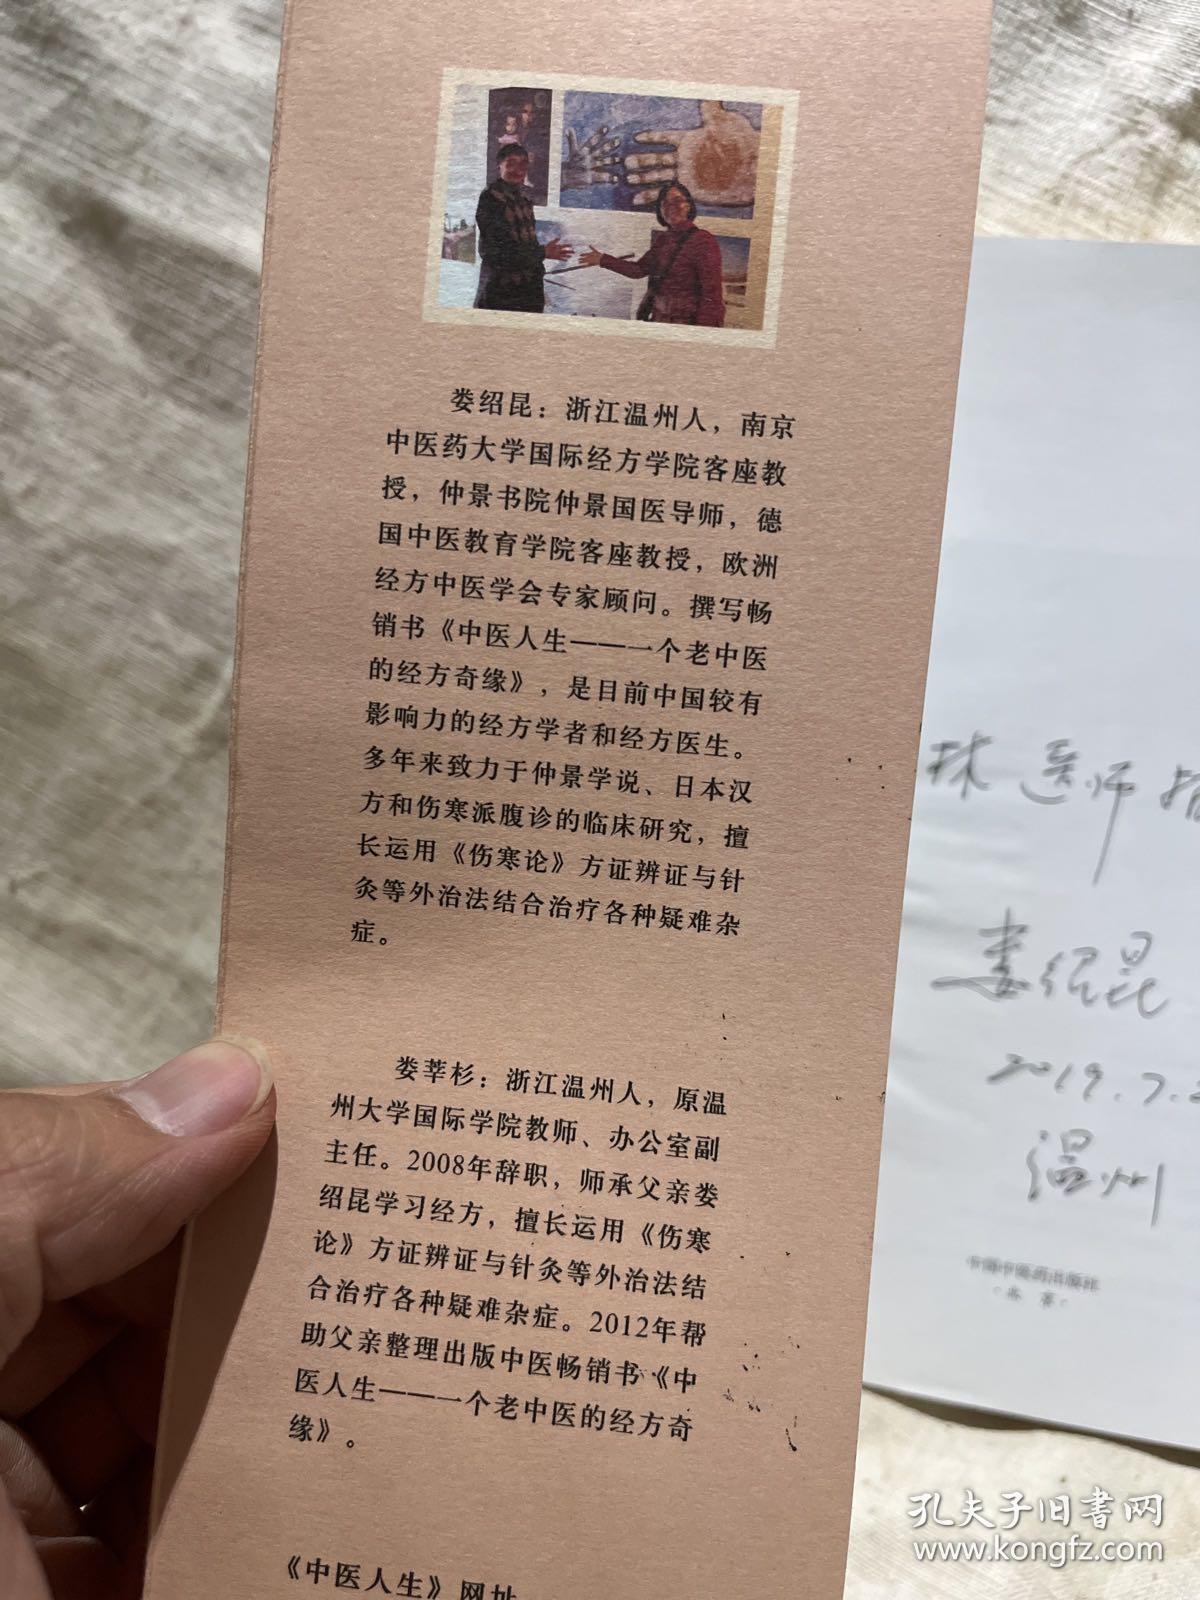 娄绍昆：浙江温州人，南京
中医药大学国际经方学院客座教
授，仲景书院仲景国医导师，德
国中医教育学院客座教授，欧洲
经方中医学会专家顾问。撰写畅
销书《中医人生——一个老中医
的经方奇缘》，是目前中国较有
影响力的经方学者和经方医生。
多年来致力于仲景学说、日本汉
方和伤寒派腹诊的临床研究，擅
长运用《伤寒论》方证辨证与针
灸等外治法结合治疗各种疑难杂
症。
娄莘杉：浙江温州人，原温
州大学国际学院教师、办公室副
主任。2008年辞职，师承父亲娄
绍昆学习经方，擅长运用《伤寒
论》方证辨证与针灸等外治法结
合治疗各种疑难杂症。2012年帮
助父亲整理出版中医畅销书《中
医人生——一个老中医的经方奇
缘》。
《中医人生》网址
林医师
娄绍昆
2019.7.
温州
中国中医药出版社
·北京·
孔夫子旧书网
www.kongfz.com